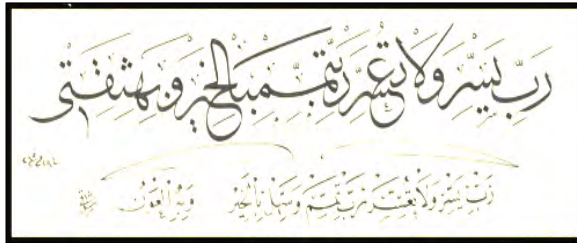 رَبِّ يَسِّرْ وَلَا تُعَسِّرْ رَبِّ تَمِّمْ بِالْخَيْرِ وَبِهِ ثِقَتِي
رَبِّ يَسِّرْ وَلَا تُعَسِّرْ رَبِّ تَمِّمْ بِالْخَيْرِ الْعَوْن